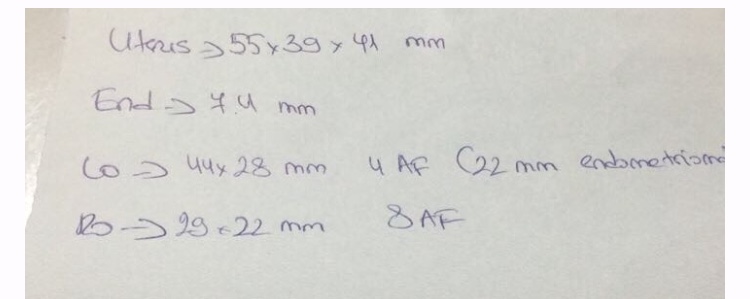 Uterus → 55x39x41 mm
End → 7.4 mm
LO → 44x28 mm 4 AF (22 mm endometrioma
RO → 29x22 mm 8AF